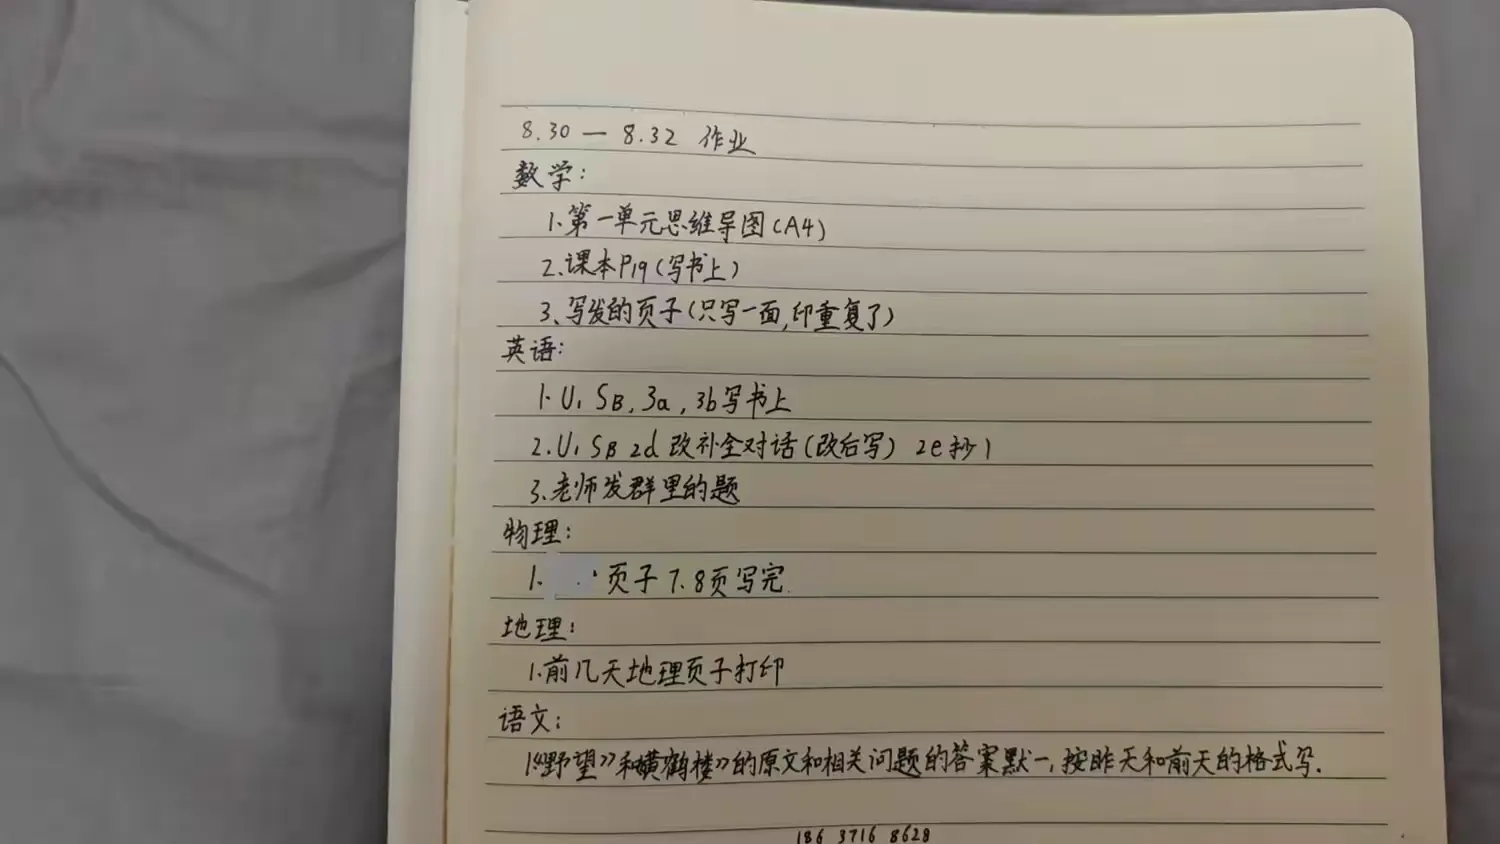 8.30 — 8.32 作业
数学：
1.第一单元思维导图(A4)
2.课本P19(写书上)
3、写发的页子(只写一面,印重复了)
英语：
1. U1 SB, 3a, 3b写书上
2. U1 SB 2d 改补全对话(改后写) 2e抄1
3.老师发群里的题
物理：
1. 页子 7.8页写完.
地理：
1.前几天地理页子打印
语文：
1《野望》和《黄鹤楼》的原文和相关问题的答案默一,按昨天和前天的格式写.
186 3716 8628